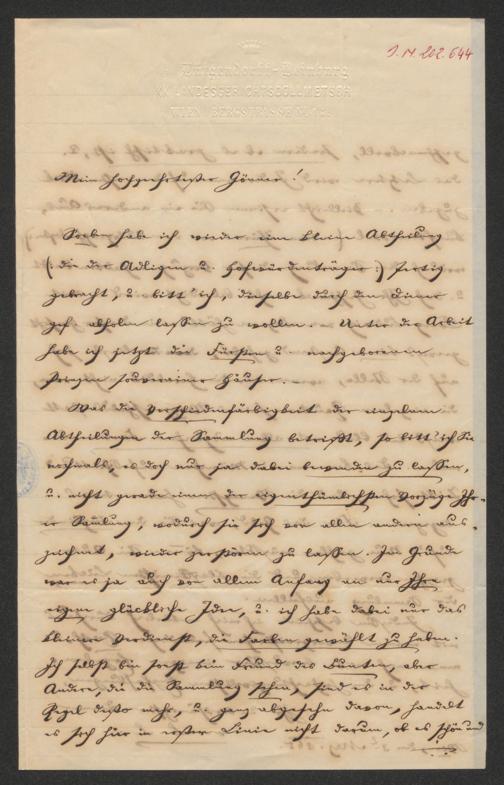 J. N. 202.644
K.K. LANDESGERICHTSDOLLMETSCH
WIEN
Mein hochgeehrtester Gönner!
Soeben habe ich wieder eine kleine Abtheilung
(: die der Adligen u. Hofwürdenträger :) fertig
gebracht, u. bitt' ich, dieselbe durch den Diener
gef. abholen lassen zu wollen. Unter der Arbeit
habe ich jetzt die Fürsten u. nachgeborenen
Prinzen souverainer Häuser.
Was die Verschiedenfärbigkeit der einzelnen
Abtheilungen der Sammlung betrifft, so bitt' ich Sie
nochmals, es doch nur ja dabei bewenden zu lassen,
u. nicht gerade einen der eigenthümlichsten Vorzüge Ih-
rer Samlung, wodurch sie sich von allen andern aus-
zeichnet, wieder zerstören zu lassen. Im Grunde
war es ja auch von allem Anfang an nur Ihre
eigene glückliche Idee, u. ich habe dabei nur das
kleine Verdienst, die Farben gewählt zu haben.
Ich selbst bin sonst kein Freund des Bunten, aber
Andere, die die Sammlung sehen, sind es in der
Regel desto mehr, u. ganz abgesehn davon, handelt
es sich hier in erster Linie nicht darum, ob es schön und